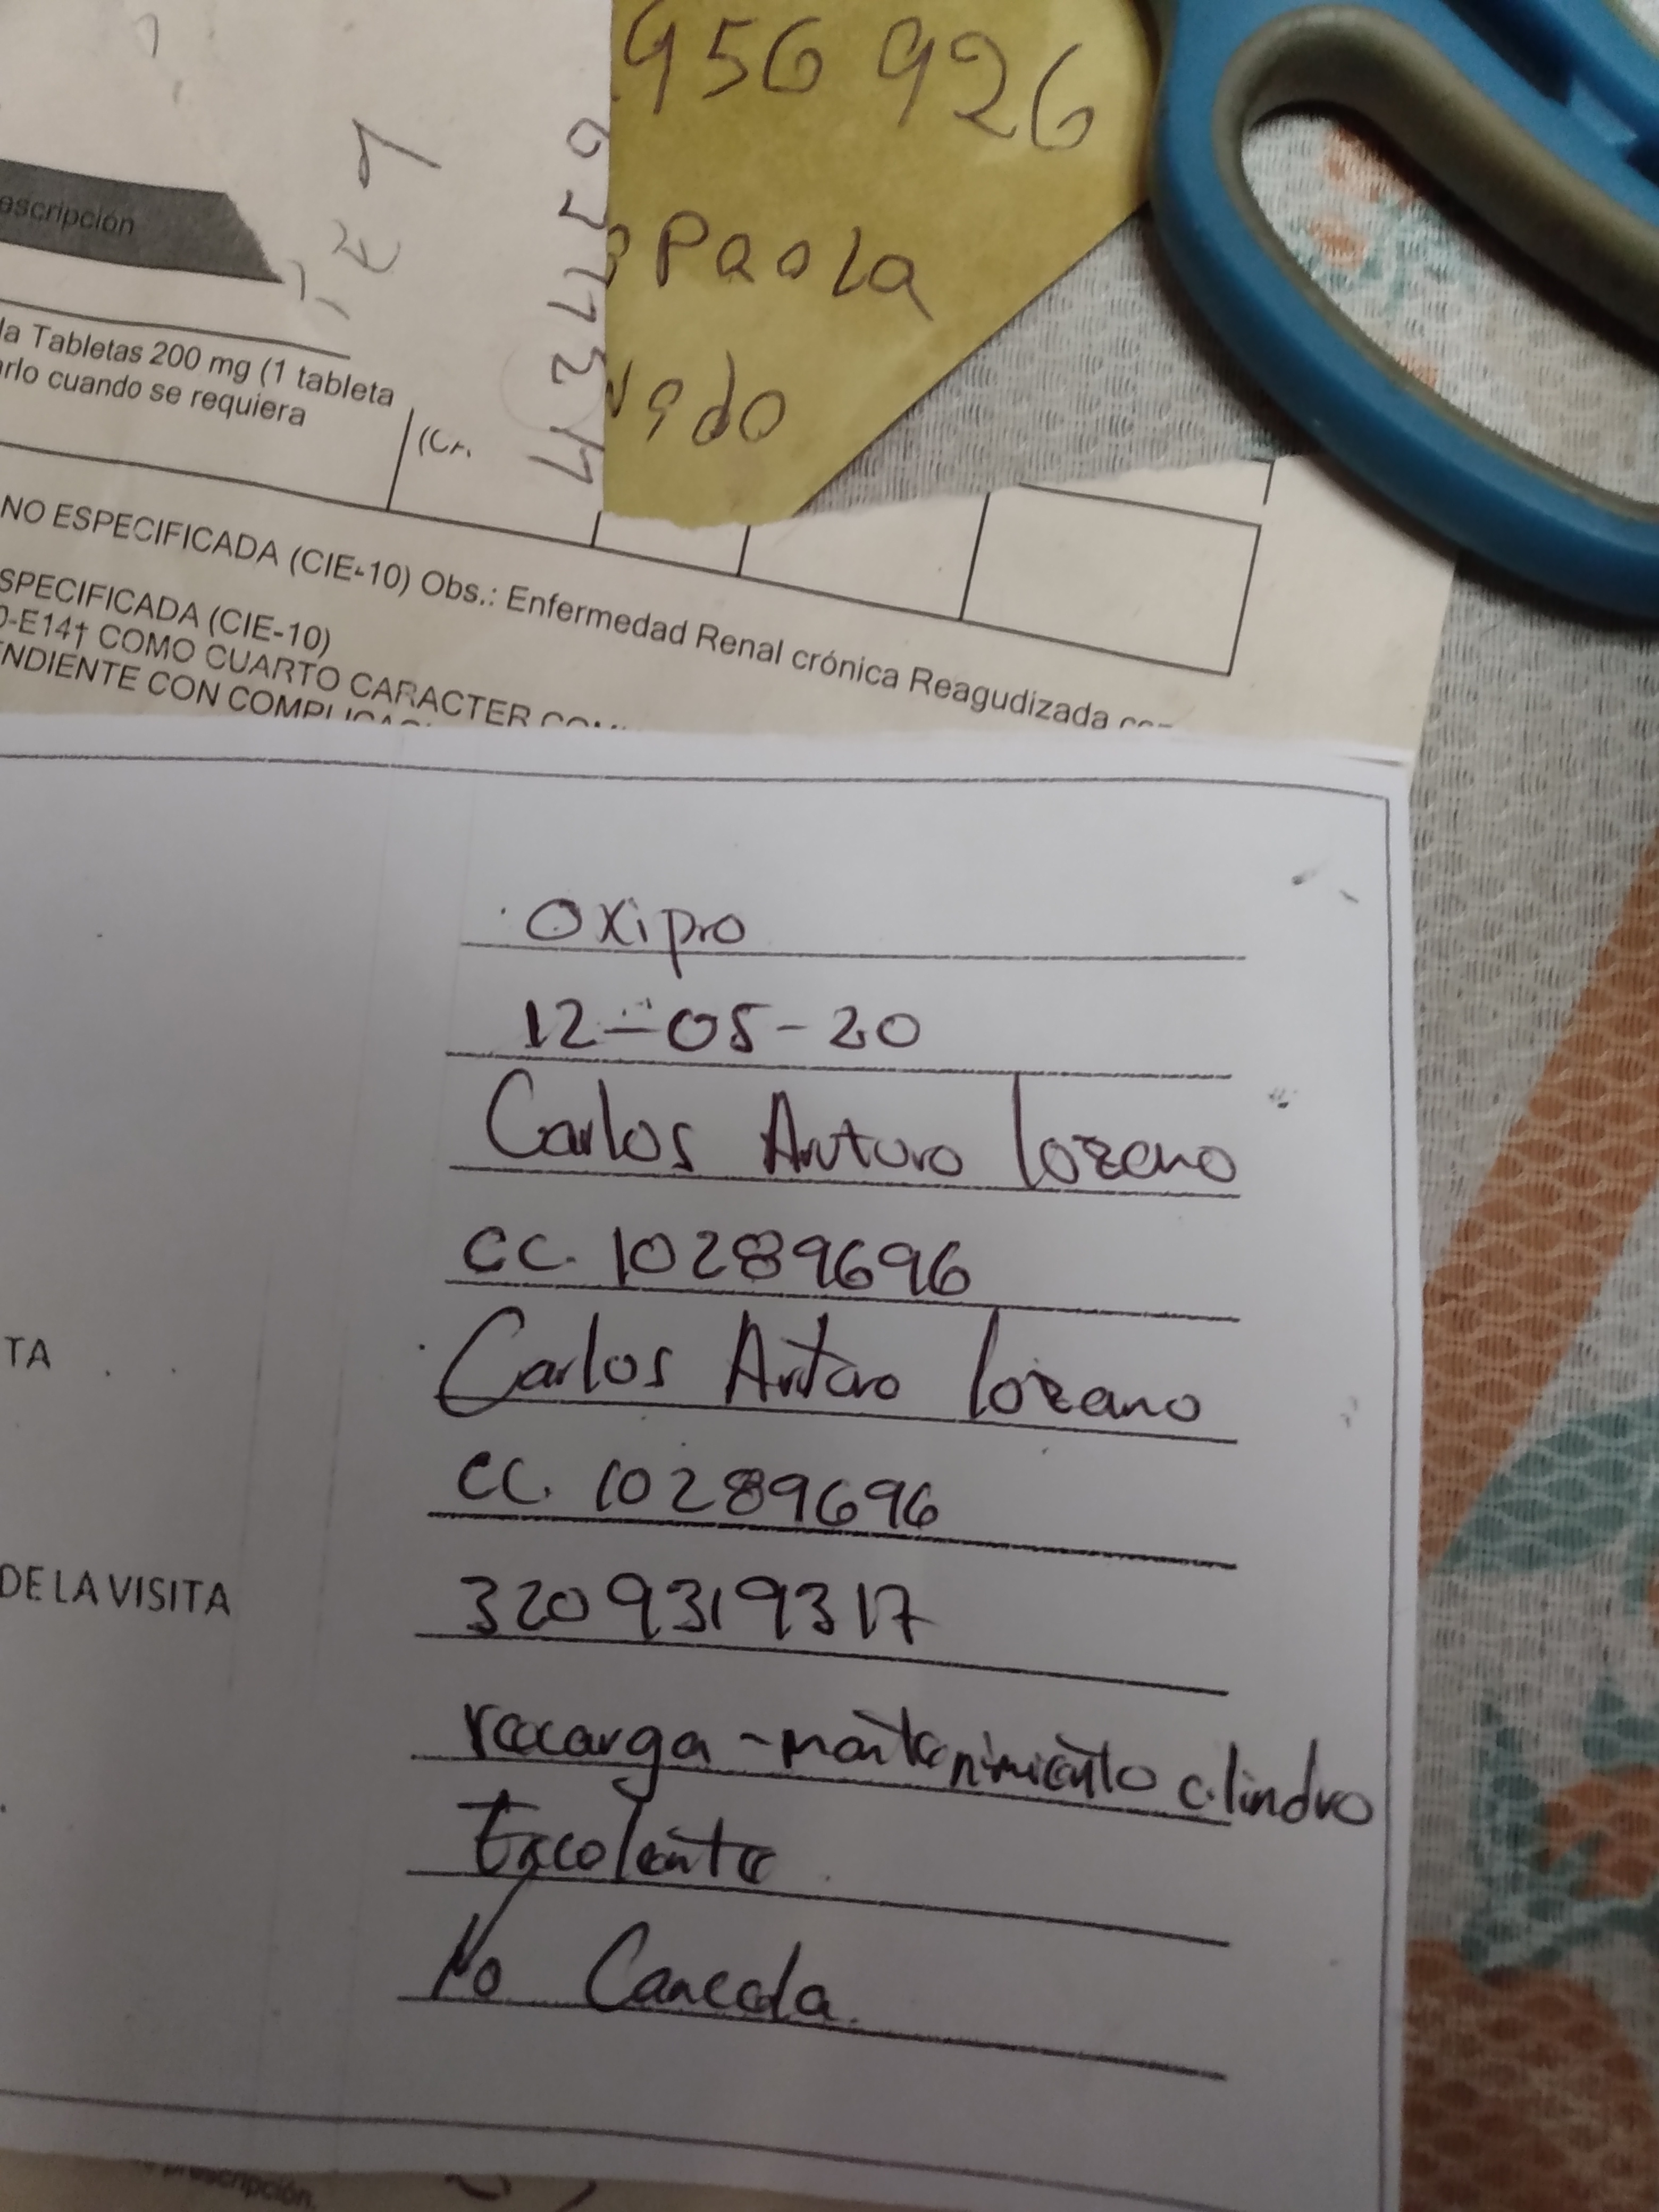 956 926
Paola
escripción
la Tabletas 200 mg (1 tableta
arlo cuando se requiera
NO ESPECIFICADA (CIE-10) Obs.: Enfermedad Renal crónica Reagudizada
SPECIFICADA (CIE-10)
0-E14† COMO CUARTO CARACTER
NDIENTE CON COMPLICAC
Oxipro
12-05-20
Carlos Arturo Lozano
CC. 10289696
TA Carlos Arturo Lozano
CC. 10289696
DE LA VISITA 3209319317
recarga - mantenimiento cilindro
Excelente
No Cancela.
prescripción.